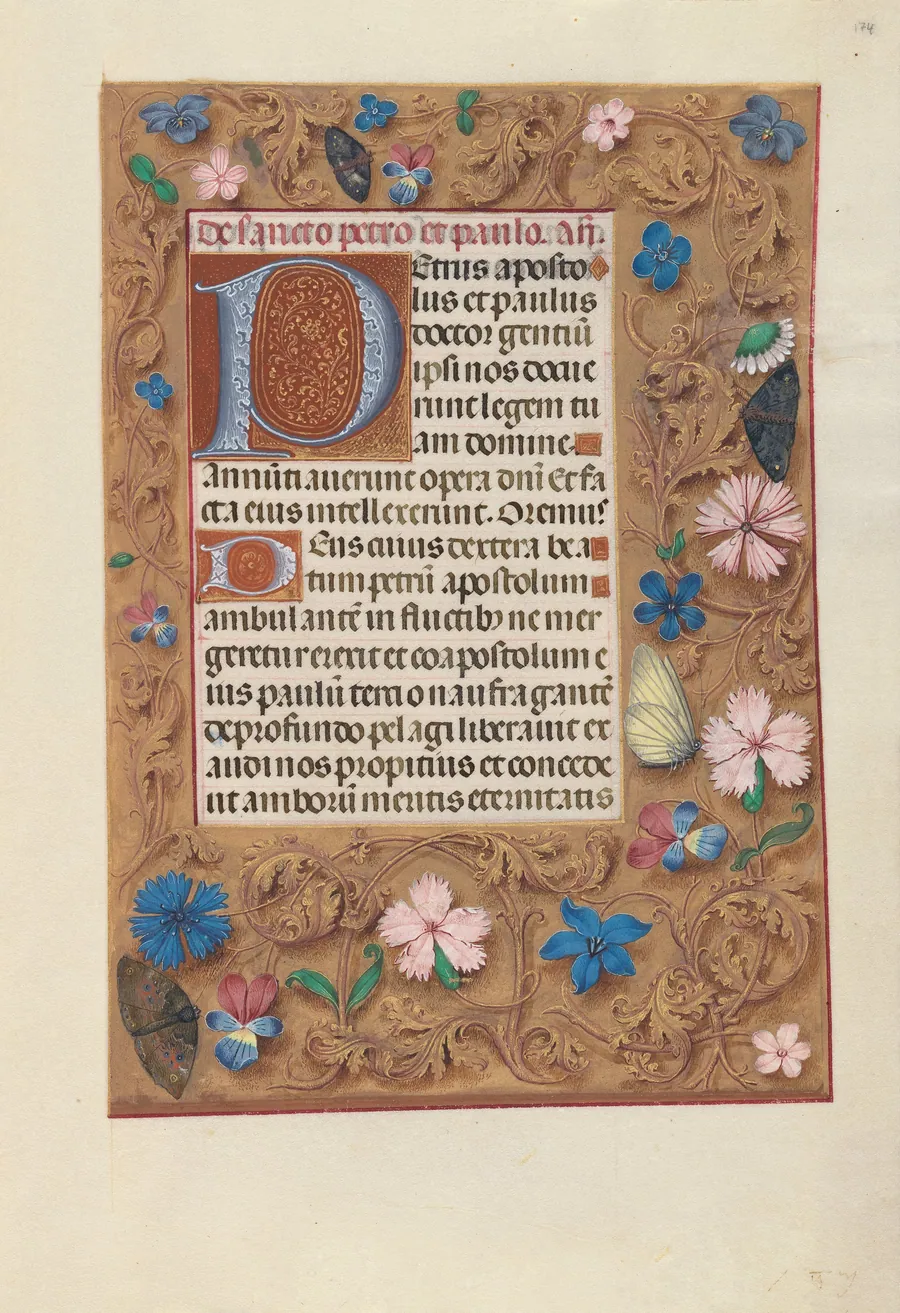 174
De sancto petro et paulo. Añ.
PEtrus aposto
lus et paulus
doctor gentiū
ipsi nos docue
runt legem tu
am domine
Annūtiauerunt opera dn̄i Et fa
cta eius intellexerunt. Oremus
DEus cuius dextera bea
tum petrū apostolum
ambulantē in fluctibꝫ ne mer
geretur erexit et coapostolum e
ius paulū tertio naufragantē
de profundo pelagi liberauit ex
audi nos propitius et concede
ut amborū meritis eternitatis